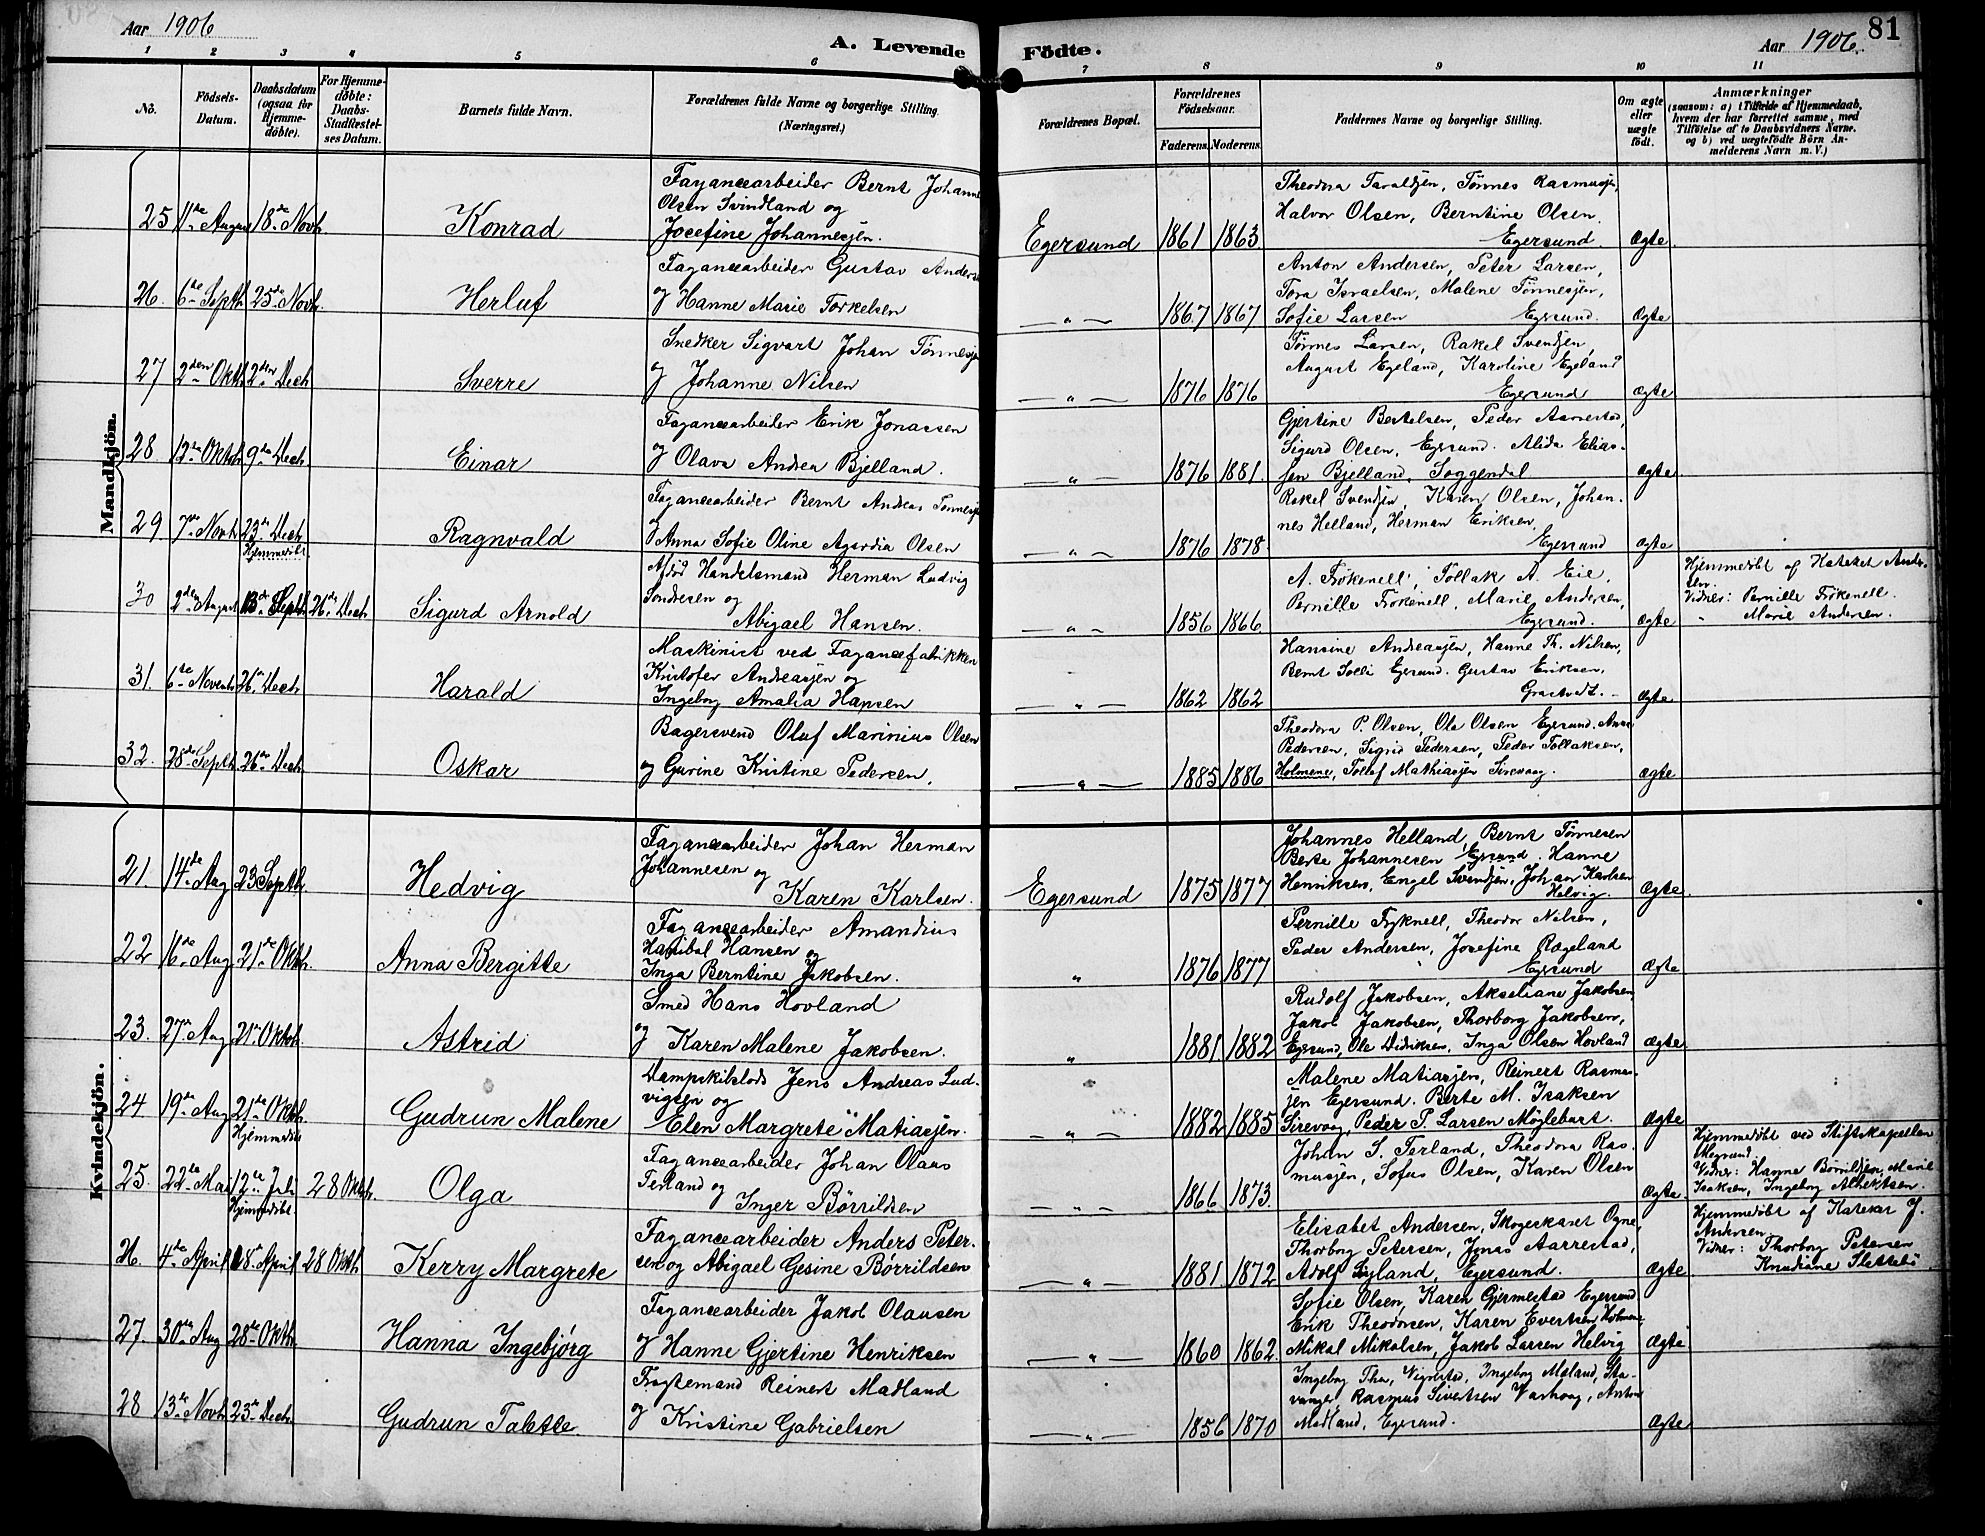 Aar 1906
A. Levende Födte.
Aar 1906.
81
1 2 3 4 5 6 7 8 9 10 11
No.
Födsels-Datum.
Daabsdatum (ogsaa for Hjemme-döbte).
For Hjemme-döbte: Daabs-Stadfæstel-ses Datum.
Barnets fulde Navn.
Forældrenes fulde Navne og borgerlige Stilling. (Næringsvei.)
Forældrenes Bopæl.
Forældrenes Födselsaar.
Faderens. Moderens.
Faddernes Navne og borgerlige Stilling.
Om ægte eller uægte födt.
Anmærkninger
(saasom: a) i Tilfælde af Hjemmedaab, hvem der har forrettet samme, med Tilföielse af to Daabsvidners Navne. og b) ved uægtefödte Börn An-melderens Navn m. V.)
Mandkjön.
25 11te August 18de Novb. Konrad
Fayancearbeider Bernt Johann
Olsen Svindland og
Josefine Johannesjen.
Egersund 1861 1863
Theodora Taraldsen, Tönnes Rasmusjen,
Halvor Olsen, Berntine Olsen.
Egersund. Ægte
26. 6te Septb. 25de Novb. Herluf
Fayancearbeider Gustav Anders
og Hanne Marie Torkelsen
— „ — 1867 1867
Anton Andersen, Peter Larsen,
Tora Israelsen, Malene Tönnesjen,
Sofie Larsen Egersund. Ægte
27 2den Oktb. 2den Decb. Sverre
Snedker Sigvart Johan Tönnesje
og Johanne Nilsen
— „ — 1876 1876
Tönnes Larsen, Rakel Svendsen,
August Egeland, Karoline Egeland
Egersund Ægte
28 12te Oktbr 9de Decb. Einar
Fayancearbeider Erik Jonassen
og Olava Andrea Bjelland.
— „ — 1876 1881.
Gjertine Bertelsen, Peder Aarrestad,
Sigurd Olsen, Egersund. Alida Elias-
sen Bjelland, Soggendal Ægte
29 7de Novb. 23de Decb. Ragnvald
Fayancearbeider Bernt Andreas Tönnesje
og Anna Sofie Oline Agardia Olsen
— „ — 1876 1878.
Rakel Svendsen, Karen Olsen, Johan-
nes Helland, Herman Eriksen,
Egersund Ægte
Hjemmedöbt
30 2den August Septb. 26de Decb. Sigurd Arnold
Afdöd Handelsmand Herman Ludvig
Sondresen og
Abigael Hansen.
— „ — 1856 1866
A. Frökenell, Tollak A. Eie,
Pernille Frökenell, Marie Andersen,
Egersund. Ægte
Hjemmedöbt af Kateket Ander-
sen.
Vidner: Pernille Frökenell.
„ Marie Andersen.
31. 6te Novemb 26de Decb. Harald
Maskinist ved Fayancefabrikken
Kristofer Andreasjen og
Ingeborg Amalia Hansen
— „ — 1862 1862
Hansine Andreasjen, Hanne Th. Nilsen,
Bernt Solli Egersund. Gustav Eriksen,
Ægte
32. 28de Septb. 26de Decb. Oskar
Bagersvend Oluf Marinius Olsen
og Gurine Kristine Pedersen.
— „ — 1885 1886
Theodora P. Olsen, Ole Olsen Egersund. Anne
Pedersen, Sigrid Pedersen, Peder Tollaksen,
Holmene, Tollef Mathiasjen Sirevaag. Ægte
Kvindekjön.
21. 14de Aug 23 Septb. Hedvig
Fayancearbeider Johan Herman
Johannesen og
Karen Karlsen.
Egersund 1875 1877
Johannes Helland, Bernt Tönnesen
Berte Johannesen Egersund. Hanne
Henriksen, Engel Svendsen, Johan Karlsen
Helvig. Ægte.
22 16de Aug 21de Oktb. Anna Bergitte
Fayancearbeider Amandius
Hanibal Hansen og
Inga Berntine Jakobsen.
„ 1876 1877
Pernille Fryknell, Theodor Nilsen,
Peder Andersen, Josefine Rægeland
Egersund Ægte
23. 27de Aug 21de Oktob. Astrid
Smed Hans Hovland
og Karen Malene Jakobsen.
„ 1881. 1882
Rudolf Jakobsen, Akseliane Jakobsen
Jakob Jakobsen, Thorborg Jakobsen,
Egersund, Ole Didriksen, Inga Olsen Hovland Ægte
24 19de Aug 21de Oktb. Gudrun Malene
Dampskibslods Jens Andreas Lud-
vigsen og
Elen Margrete Matiasjen.
— „ — 1882 1885
Malene Matiasjen, Reinert Rasmus-
jen Egersund. Berte M. Isaksen
Sirevaag, Peder P. Larsen Möglebust. Ægte
Hjemmedöbt
25. 22de Mai 12te Juli 28 Oktb. Olga
Fayancearbeider Johan Olaus
Terland og
Inger Börrildsen
— „ — 1866 1873.
Johan S. Terland, Theodora Ras-
musjen, Sofus Olsen, Karen Olsen
Ægte.
Hjemmedöbt ved Stiftskapellan
Vidner: Hanne Börrildsen, Marie
Isaksen, Ingeborg Albektsen.
Hjemmedöbt.
26. 4de April 18de April 28 Oktb. Kerry Margrete
Fayancearbeider Anders Peter-
sen og Abigael Gesine Börrildsen
— „ — 1881 1872
Elisabet Andersen, Skogeskaret Ogne,
Thorborg Petersen, Jonas Aarrestad,
Adolf Eyland, Egersund. Ægte
Hjemmedöbt af Kateket J.
Andersen
Vidner: Thorborg Petersen
Knudiane Slettebö
27. 30de Aug 28de Oktb. Hanna Ingebjørg
Fayancearbeider Jakob Olausen
og Hanne Gjertine Henriksen
— „ — 1860 1862.
Sofie Olsen, Karen Gjermestad Egersund
Erik Theodorsen, Karen Evertsen Holmene,
Mikal Mikalsen, Jakob Larsen Helvig Ægte
28 13de Novb. 23de Decb. Gudrun Talette
Fragtemand Reinert Madland
og Kristine Gabrielsen
— „ — 1856 1870
Ingeborg Vigrestad, Ingeborg Meland, Sta-
vanger, Rasmus Sivertsen Varhaug, Anton
Madland, Egersund. Ægte